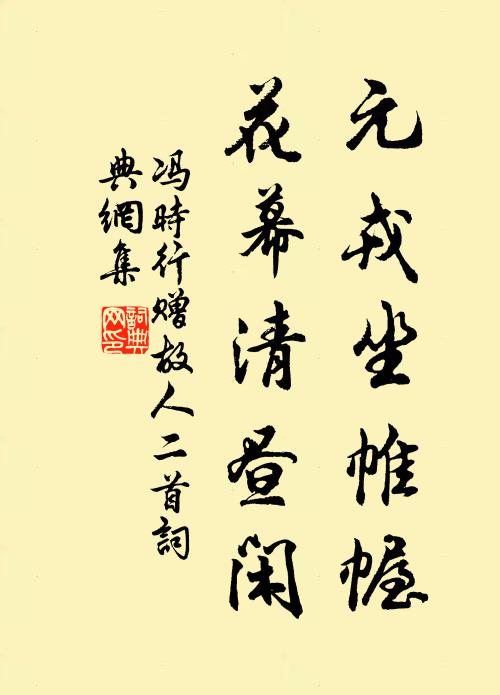 元戎坐帷幄
花幕清昼闲
冯時行赠故人二首詞
典網集
詞典网印